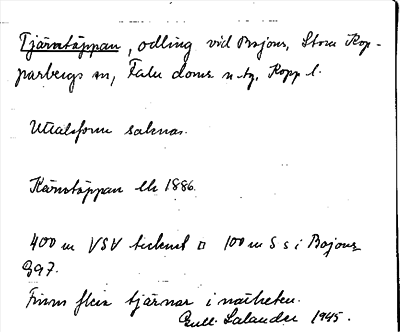 Tjärntäppan, odling vid Bojsen, Stora Kop-
parbergs sn, Falu doms n tg, Kopp l.
Uttalsform saknas.
Kärntäppan ek 1886.
400 m VSV tecknet □ 100 m S s i Bojsen
Finns flera tjärnar i närheten.
Gull. Salander 1945.